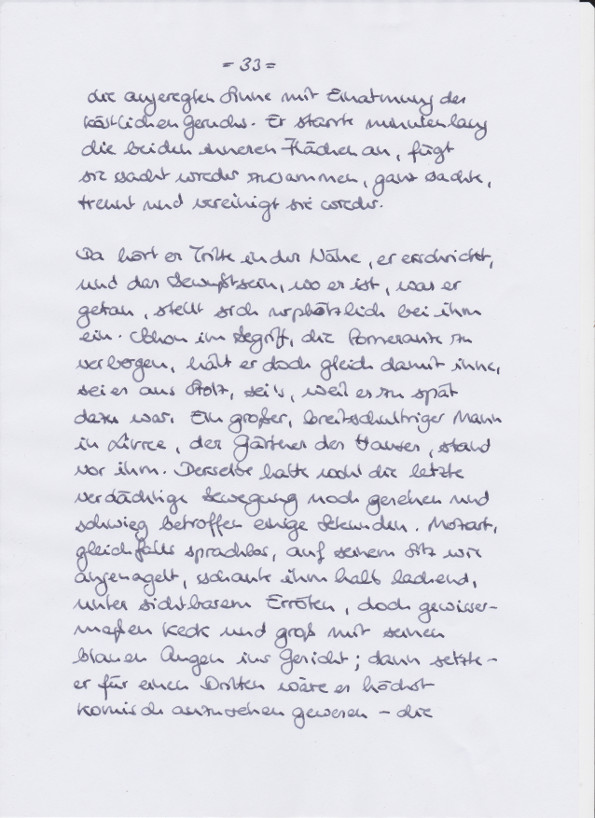 = 33 =
die angeregten Sinne mit Einatmung des
köstlichen Geruchs. Er starrte minutenlang
die beiden inneren Flächen an, fügt
sie sacht wieder zusammen, ganz sachte,
trennt und vereinigt sie wieder.
Da hört er Tritte in der Nähe, er erschrickt,
und das Bewußtsein, wo er ist, was er
getan, stellt sich urplötzlich bei ihm
ein. Schon im Begriff, die Pomeranze zu
verbergen, hält er doch gleich damit inne,
sei es aus Stolz, sei's, weil es zu spät
dazu war. Ein großer, breitschultriger Mann
in Livree, der Gärtner des Hauses, stand
vor ihm. Derselbe hatte wohl die letzte
verdächtige Bewegung noch gesehen und
schwieg betroffen einige Sekunden. Mozart,
gleichfalls sprachlos, auf seinem Sitz wie
angenagelt, schaute ihm halb lachend,
unter sichtbarem Erröten, doch gewisser-
maßen keck und groß mit seinen
blauen Augen ins Gesicht; dann setzte -
er für einen Dritten wäre es höchst
komisch anzusehen gewesen - die